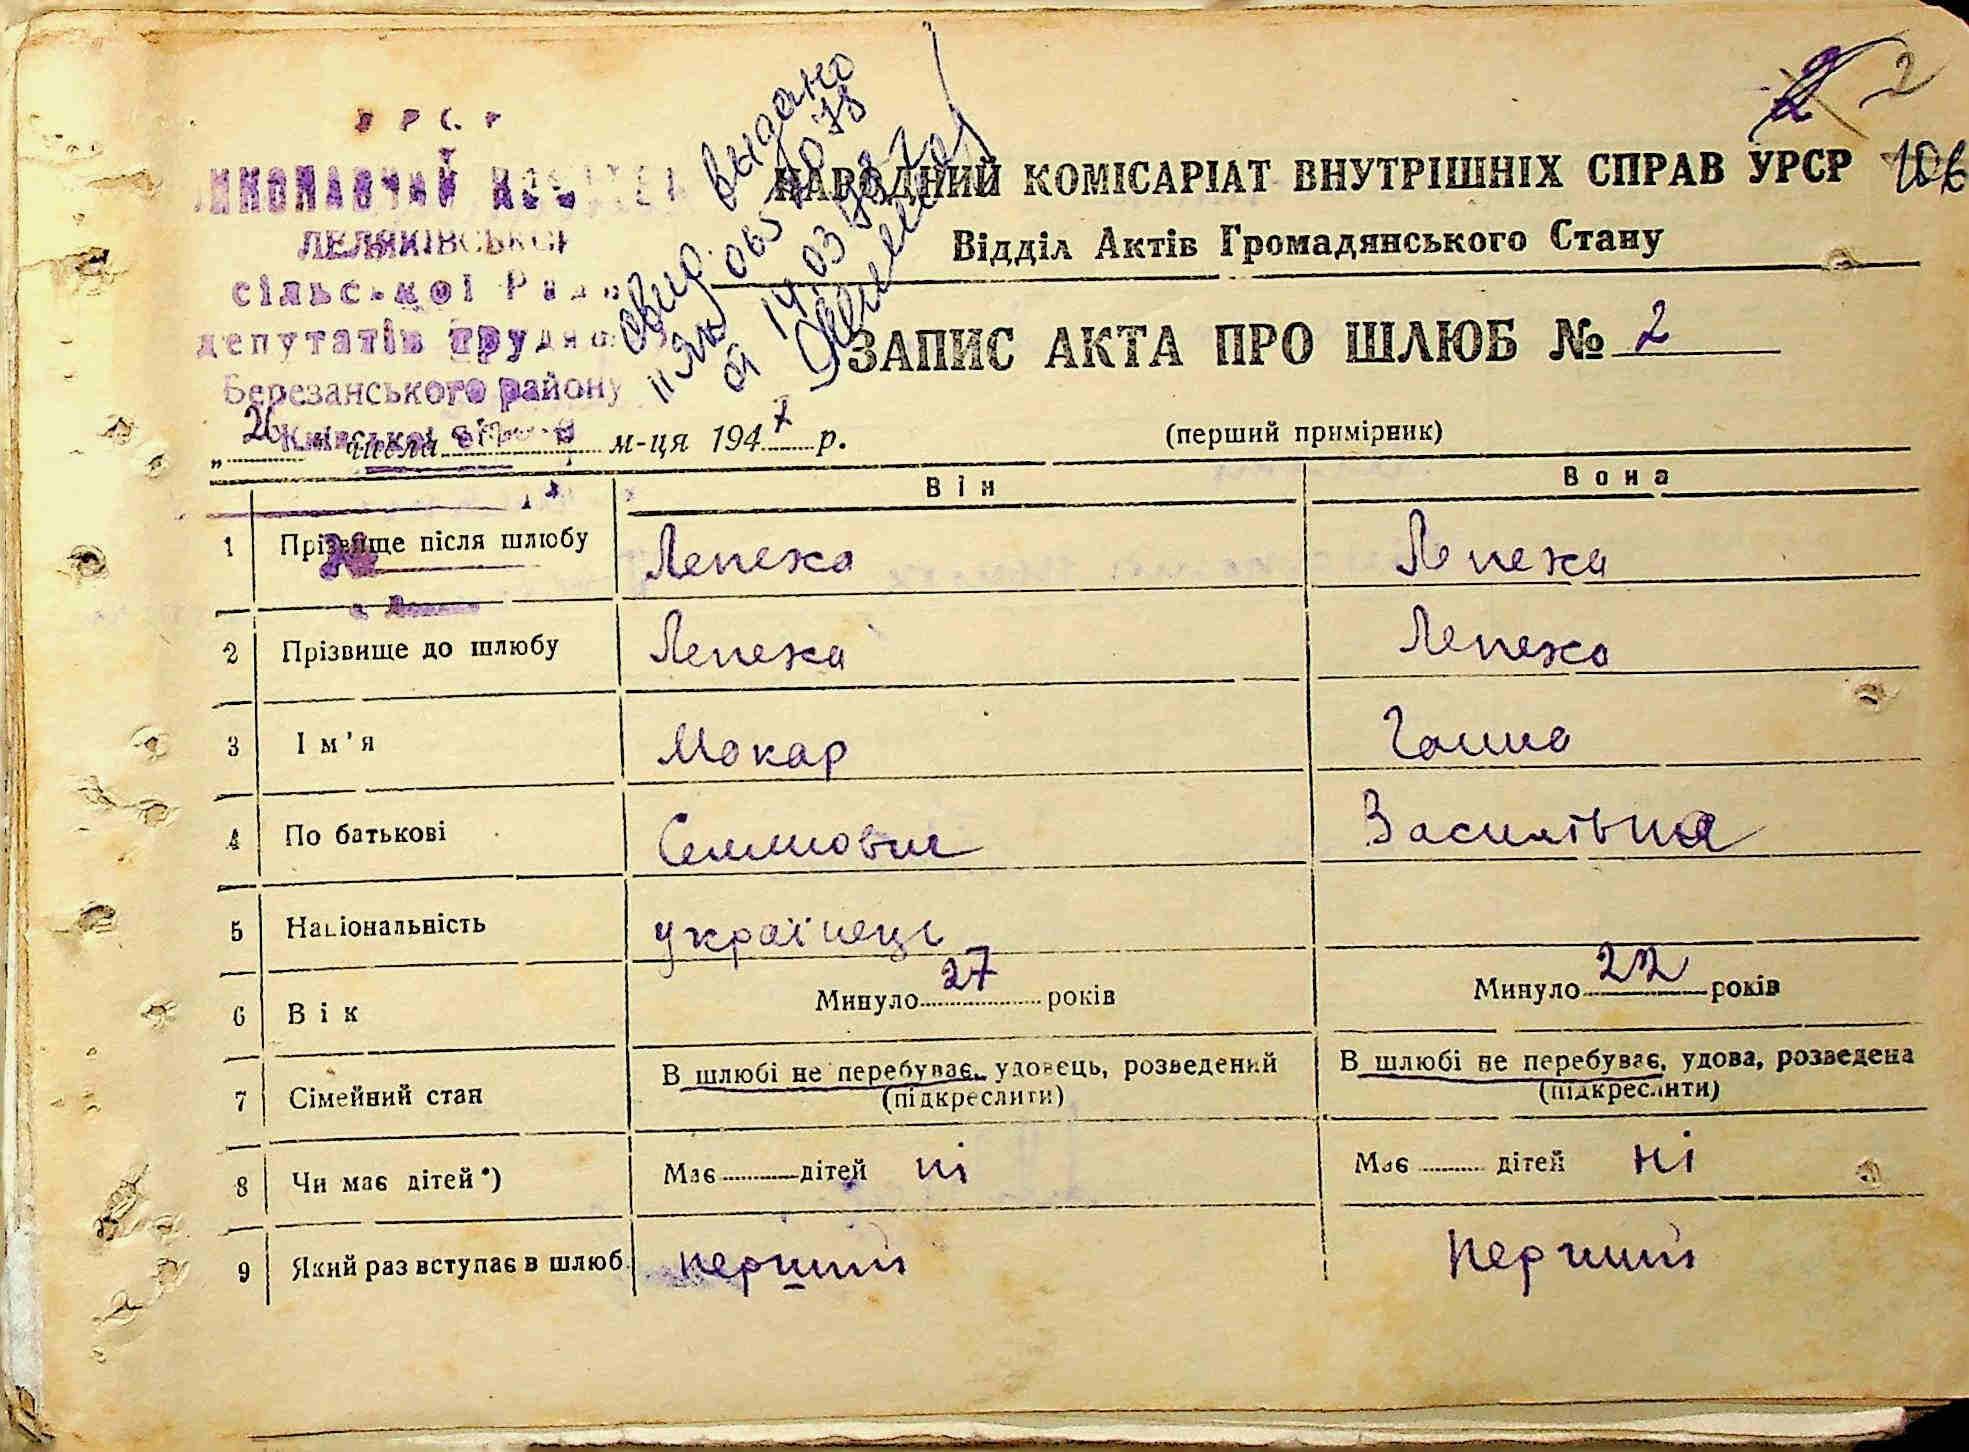 2 2
УРСР
ВИКОНАВЧИЙ КОМІТЕТ
ЛЕЛЯКІВСЬКОЇ
сільської Ради
депутатів трудящих
Березанського району
Київської області
Выдано
свид.
от 14 03
НАРОДНИЙ КОМІСАРІАТ ВНУТРІШНІХ СПРАВ УРСР
Відділ Актів Громадянського Стану
ЗАПИС АКТА ПРО ШЛЮБ № 2
„ 26 " числа м-ця 1947 р. (перший примірник)
Він Вона
1 Прізвище після шлюбу Лепеха Лепеха
2 Прізвище до шлюбу Лепеха Лепеха
3 Ім'я Макар Ганна
4 По батькові Семенович Василівна
5 Національність українець
6 Вік Минуло 27 років Минуло 22 років
7 Сімейний стан В шлюбі не перебуває, удовець, розведений (підкреслити) В шлюбі не перебуває, удова, розведена (підкреслити)
8 Чи має дітей*) Має дітей ні Має дітей ні
9 Який раз вступає в шлюб перший перший